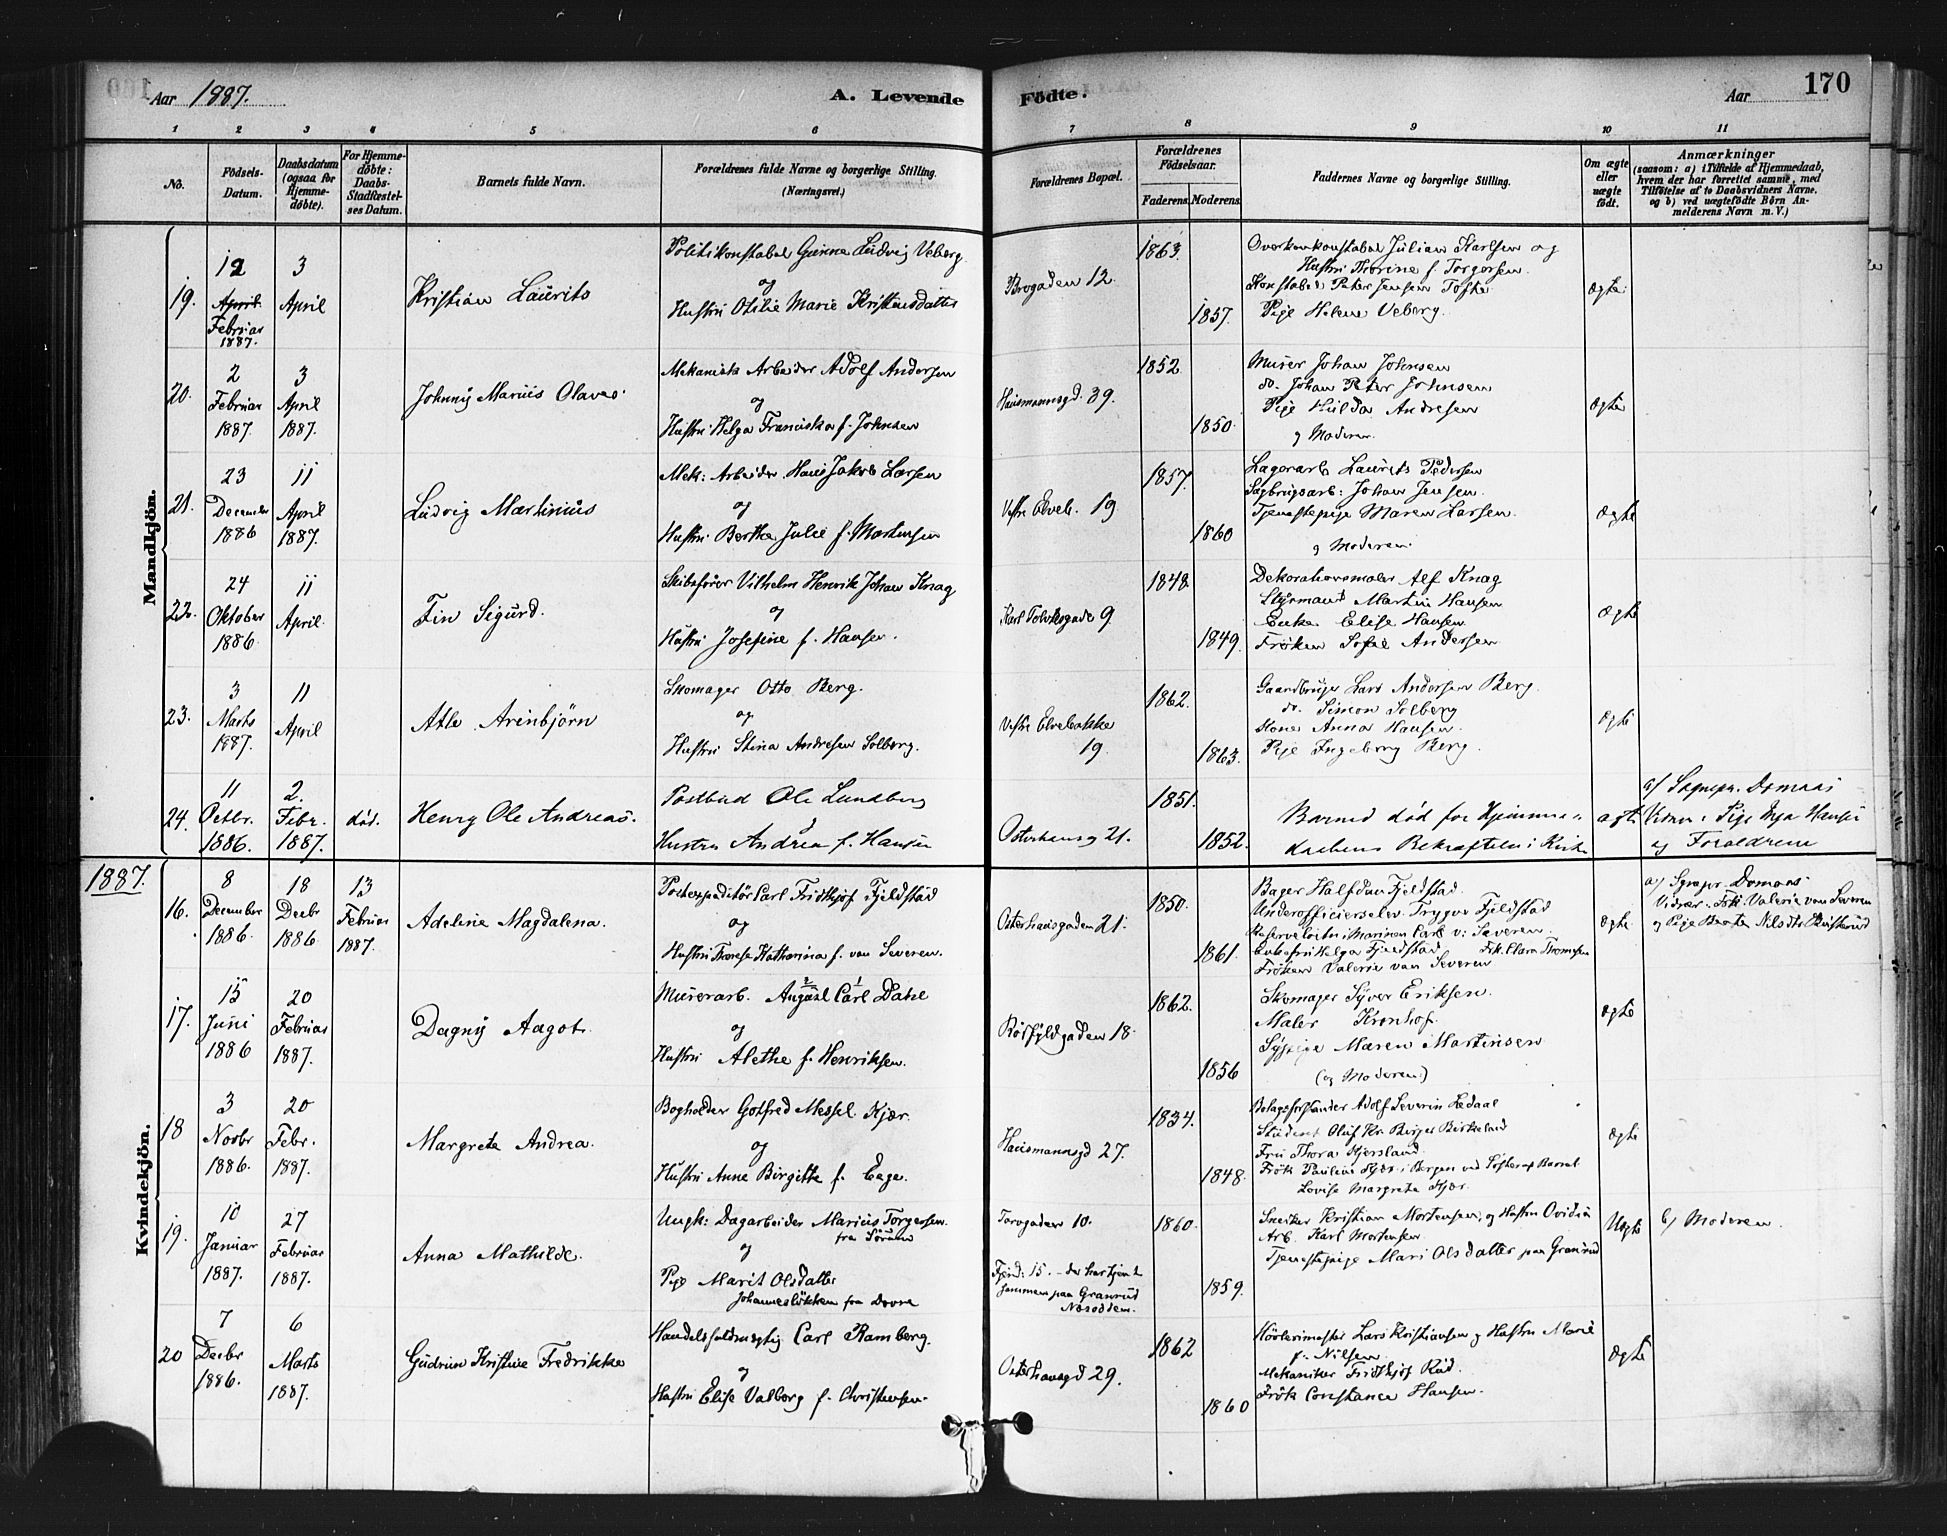 Aar 1887.
A. Levende Födte.
Aar
170
1 2 3 4 5 6 7 8 9 10 11
No.
Födsels-Datum.
Daabsdatum (ogsaa for Hjemme-döbte).
For Hjemme-döbte: Daabs-Stadfæstel-ses Datum.
Barnets fulde Navn.
Forældrenes fulde Navne og borgerlige Stilling. (Næringsvei.)
Forældrenes Bopæl.
Forældrenes Födselsaar.
Faderens. Moderens.
Faddernes Navne og borgerlige Stilling.
Om ægte eller uægte födt.
Anmærkninger
(saasom: a) i Tilfælde af Hjemmedaab, hvem der har forrettet samme, med Tilföielse af to Daabsvidners Navne, og b) ved uægtefödte Börn An-melderens Navn m. V.)
Mandkjön.
19.
12 April Februar 1887.
3 April
Kristian Laurits
Politikonstabel Gunne Ludvig Veberg
og
Hustru Otilie Marie Kristensdatter
Brogaden 12.
1863.
1857.
Overkonstabel Julian Karlsen og
Hustru Thorine f. Torgersen.
Konstabel Peter Jensen Tofte
Pige Helene Veberg.
ægte
20.
2 Februar 1887.
3 April 1887.
Johnny Marius Olaves
Mekanisk Arbeider Adolf Andersen
og
Hustru Helga Franciska f. Johnsen
Hausmannsgd. 39.
1852
1850.
Murer Johan Johnsen
do. Johan Peter Johnsen
Pige Hulda Andresen
og Moderen.
ægte
21.
23 December 1886
11 April 1887.
Ludvig Martinius
Mek: Arbeider Hans Jakob Larsen
og
Hustru Berthe Julie f. Mortensen
Vestre Elveb. 19
1857.
1860
Lagerarb Laurits Pedersen
Sagbrugsarb: Johan Jensen.
Tjenestepige Maren Larsen.
og Moderen.
ægte
22.
24 Oktober 1886
11 April.
Fin Sigurd.
Skibsfører Vilhelm Henrik Johan Knag
og
Hustru Josefine f. Hansen.
9
1848
1849.
Dekorationsmaler Alf Knag
Styrmand Martin Hansen
Enke Elise Hansen
Frøken Sofie Andersen
ægte
23.
3 Marts 1887.
11 April
Atle Arinbjörn
Skomager Otto Berg.
og
Hustru Stina Andresen Solberg.
Vestre Elvebakke 19.
1862.
1863.
Gaardbruger Lars Andersen Berg.
do. Simon Solberg
Kone Anna Hansen.
Pige Ingeborg Berg.
ægte
24.
11 Octbr. 1886.
2. Febr. 1887.
død.
Henry Ole Andreas.
Postbud Ole Lundberg
Hustru Andrea f. Hansen
Osterhausg 21.
1851.
1852.
Barnet død før Hjemme-
daabens Bekræftelse i Kirke
ægte
a/ Sognepr. Domaas
Vidner: Pige Inga Hansen
og Forældrene
1887.
Kvindekjön.
16.
8 December 1886.
18 Decbr 1886
13 Februar 1887.
Adeline Magdalena.
Postexpeditör Carl Fridthjof Fjeldstad
og
Hustru Therese Katharina f. van Severen.
Osterhausgaden 21.
1850.
1861.
Bager Halfdan Fjeldstad.
Underofficierselev Trygve Fjeldstad
Reserveløitn i Marinen Carl v: Severen.
Enkefru Helga Fjeldstad Frk. Clara Thomesen
Frøken Valerie van Severen
ægte
a/ Sgnepr. Domaas
Vidner: Frk. Valerie van Severen
og Pige
17.
15 Juni 1886
20 Februar 1887.
Dagny Aagot.
Murerarb. August Carl Dahl
og
Hustru Alethe f. Henriksen.
18.
1862.
1856
Skomager Syver Eriksen.
Maler Kronhof.
Sypige Maren Martinsen
(og Moderen)
ægte
18
3 Novbr 1886.
20 Febr. 1887.
Margrete Andrea.
Bogholder Gotfred Messel Kjær.
og
Hustru Anne Birgitte f. Eege.
Hausmannsgd 27.
1834.
1848.
Adolf Severin Ledaal
Student Oluf Kr. Birger Birkeland
Fru Thora Kjersland.
Frøk Pauline Kjær i Bergen ved Søsteren
Lovise Margrete Kjær.
ægte
19.
10 Januar 1887.
27 Februar 1887.
Anna Mathilde.
Ungk: Dagarbeider Marius Torgersen.
fra Sørum
og
Pige Marit Olsdatter
Johannesløkken fra Dovre
Torvgaden 10.
Fjerd: 15. – der har tjent
sammen paa Granrud
Nesodden.
1860.
1859.
Snedker Kristian Mortensen, og Hustru Ovidia
Arb. Karl Mortensen.
Tjenestepige Mari Olsdatter paa Granrud
Uægte
b/ Moderen.
20
7 Decbr 1886.
6 Marts 1887.
Gudrun Kristine Fredrikke
Handelsfuldmægtig Carl Ramberg.
og
Hustru Elise Valborg f. Christensen.
Osterhausgd 29.
1862
1860
Lars Kristiansen og Hustru Marie
f. Nilsen.
Mekaniker Fridthjof Rud.
Frøk Constance Hansen.
ægte